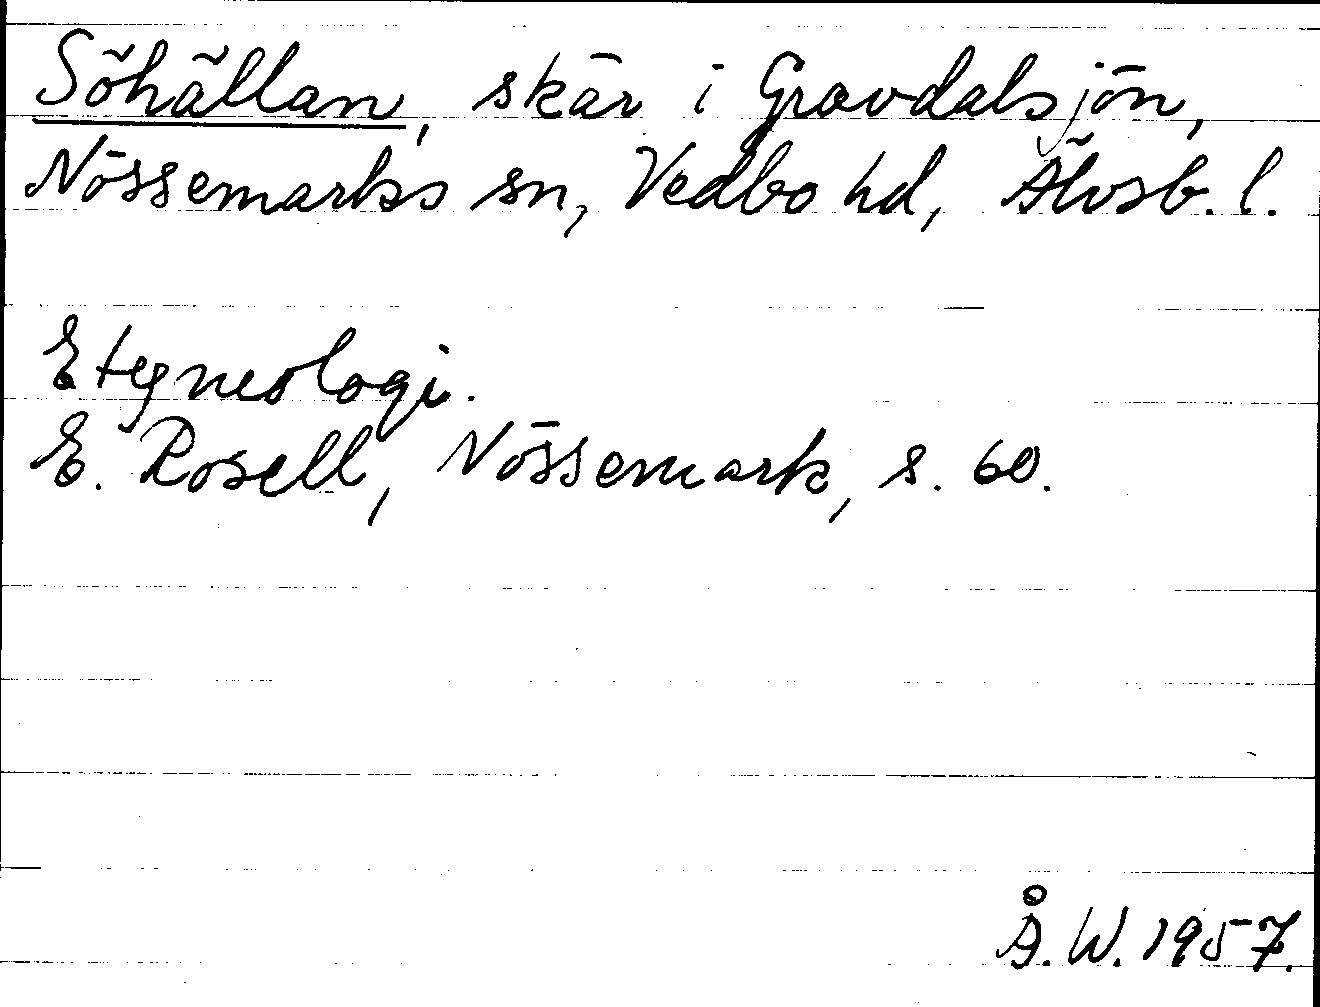 Söhällan, skär i Gravdalsjön,
Nössemarks sn, Vedbo hd, Älvsb. l.
Etymologi.
E. Rosell, Nössemark, s. 60.
Å. W. 1957.